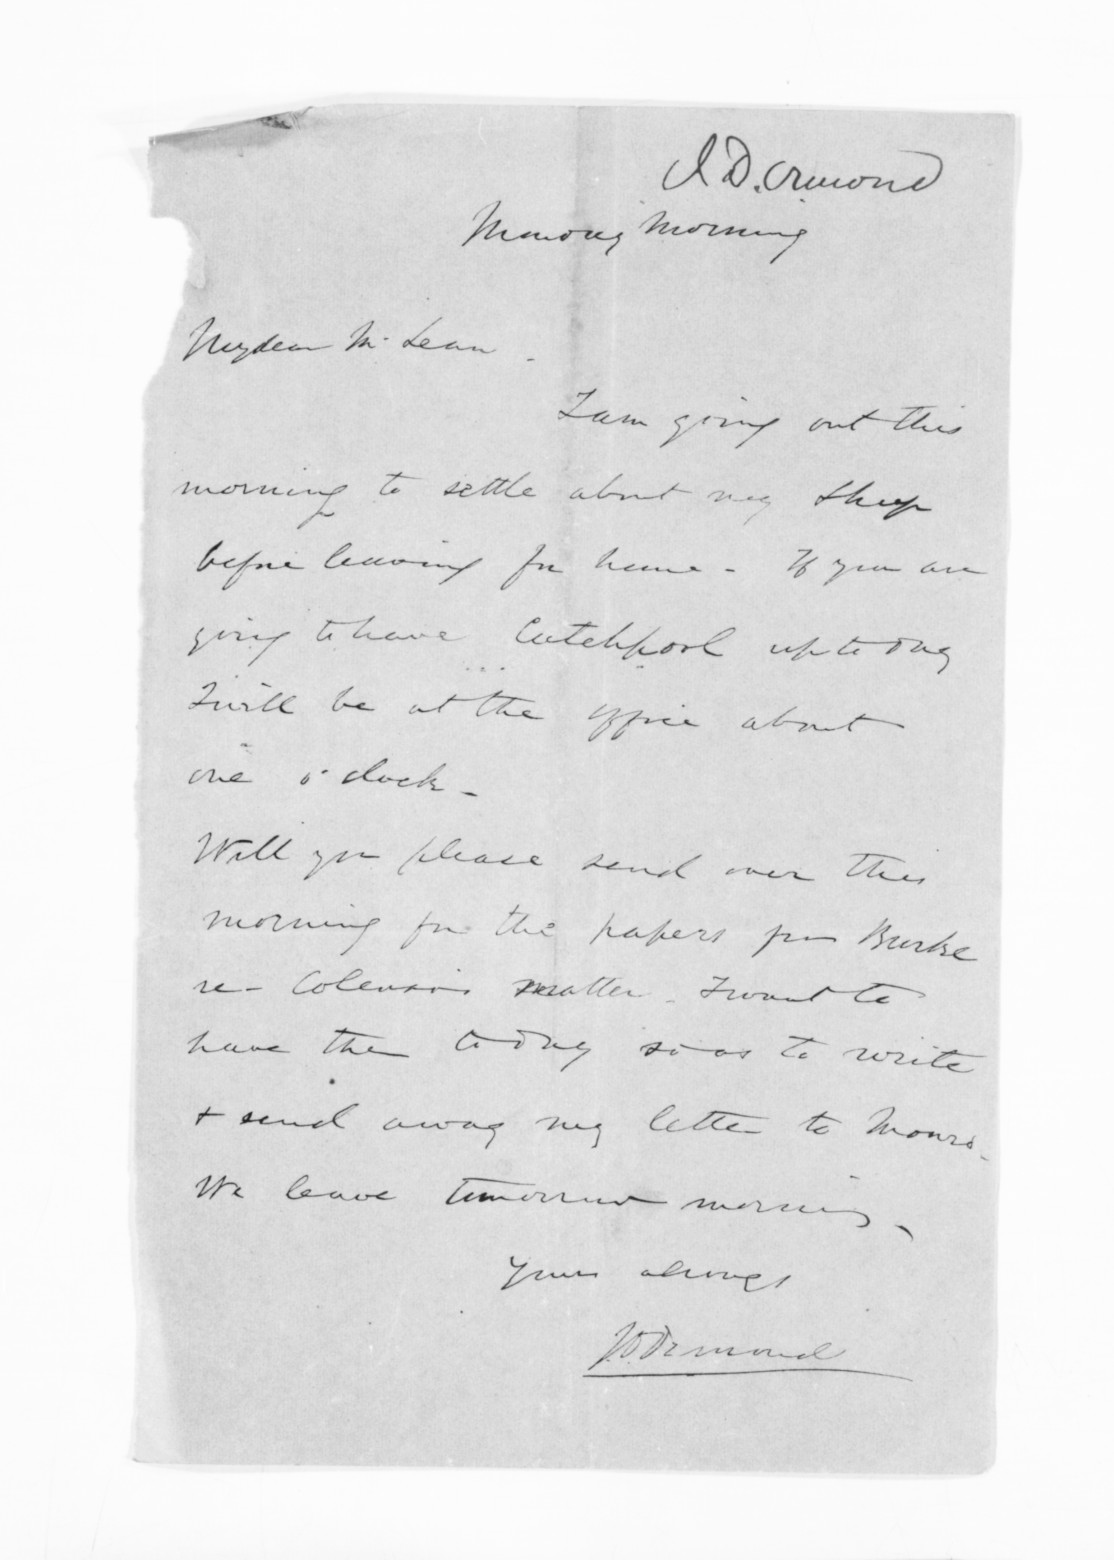 J. D. Ormond
Monday Morning
My dear McLean -
I am going out this
morning to settle about my sheep
before leaving for home - If you are
going to have Catchpool up to day
I will be at the office about
one o'clock -
Will you please send over this
morning for the papers from Burke
re - Colenso's matter - I want to
have them to day so as to write
& send away my letter to Monro -
We leave tomorrow morning -
Yours always
J.D. Ormond